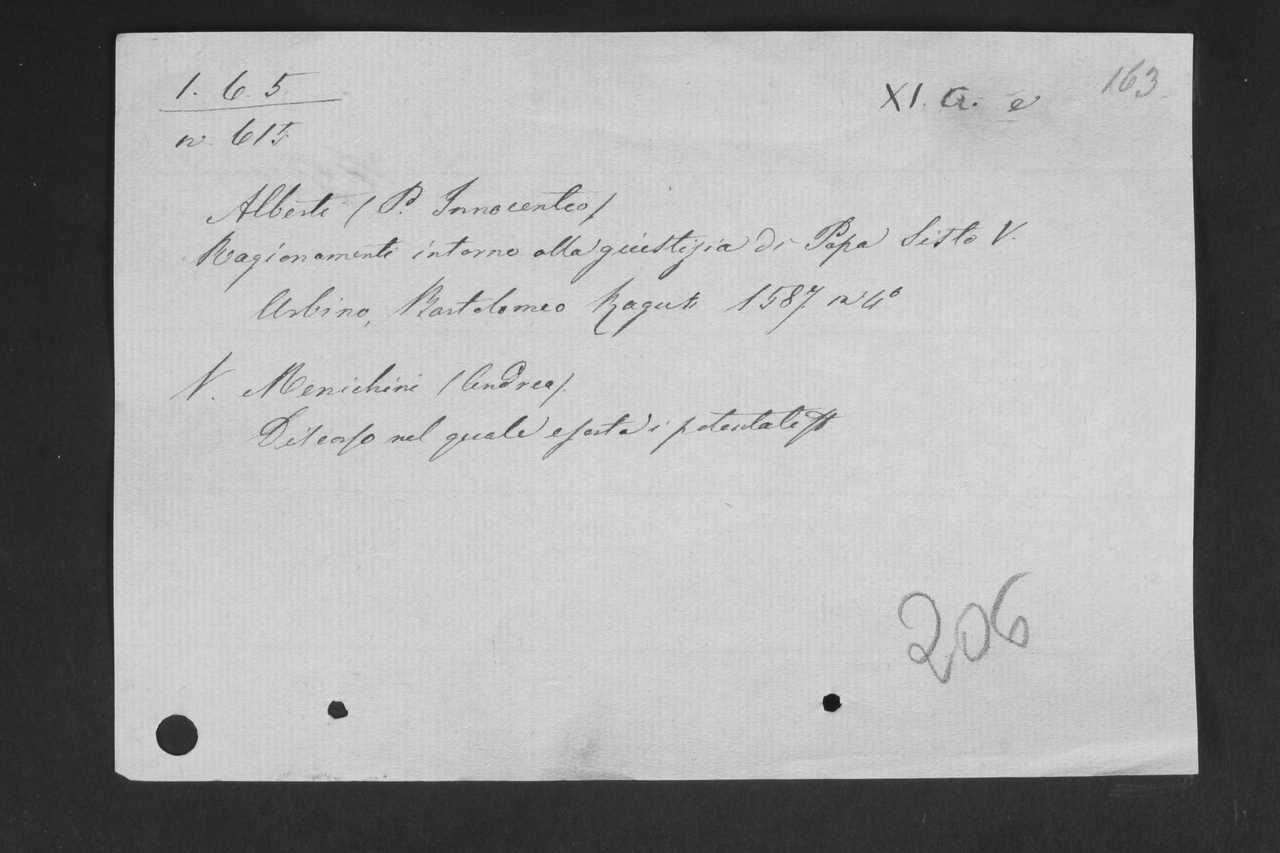 1. 6. 5
n. 615
XI. a. e
163
Alberti (P. Innocentio)
Ragionamenti intorno alla giustizia di Papa Sisto V.
Urbino, Bartolomeo Ragusi 1587 in 4°
V. Menichini (Andrea).
Discorso nel quale esorta i potentati
206